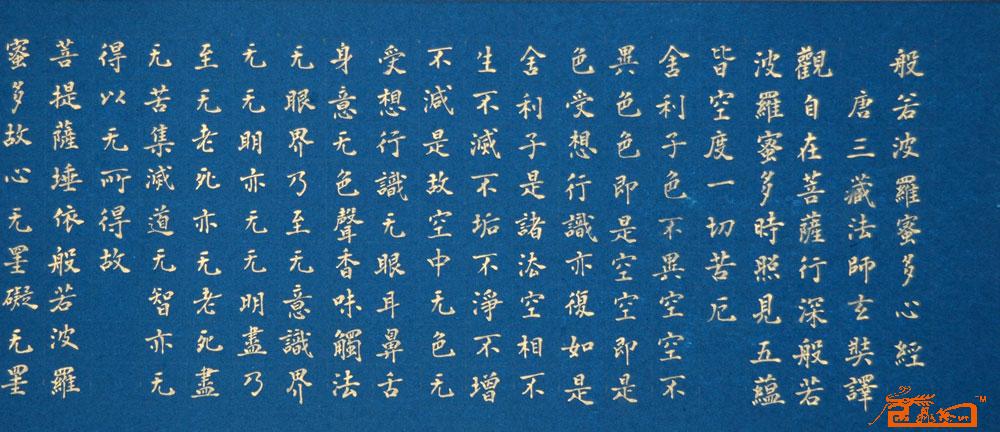 般若波羅蜜多心經
唐三藏法師玄奘譯
觀自在菩薩行深般若
波羅蜜多時照見五蘊
皆空度一切苦厄
舍利子色不異空空不
異色色即是空空即是
色受想行識亦復如是
舍利子是諸法空相不
生不滅不垢不淨不增
不減是故空中无色无
受想行識无眼耳鼻舌
身意无色聲香味觸法
无眼界乃至无意識界
无无明亦无无明盡乃
至无老死亦无老死盡
无苦集滅道无智亦无
得以无所得故
菩提薩埵依般若波羅
蜜多故心无罣礙无罣
TM